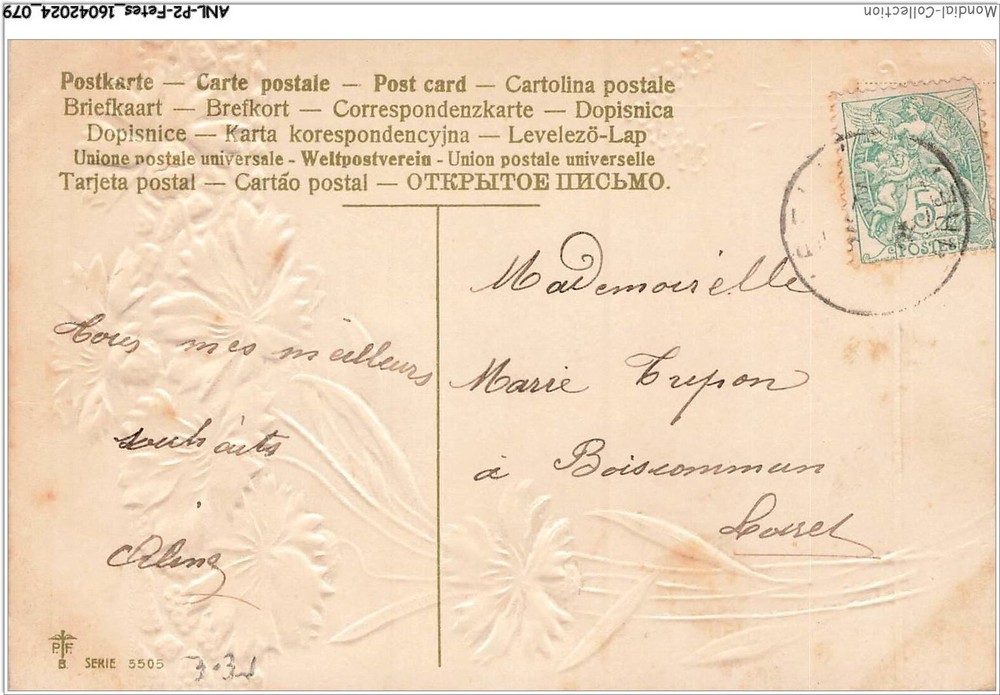 ANL-P2-Fetes_16042024_079
Mondial-Collection
Postkarte — Carte postale — Post card — Cartolina postale
Briefkaart — Brefkort — Correspondenzkarte — Dopisnica
Dopisnice — Karta korespondencyjna — Levelező-Lap
Unione postale universale - Weltpostverein - Union postale universelle
Tarjeta postal — Cartão postal — ОТКРЫТОЕ ПИСЬМО.
5
POSTES
Mademoiselle
Marie Trepon
à Boiscommun
Loiret
Tous mes meilleurs
souhaits
Aline
P.F.
B. SERIE 5505